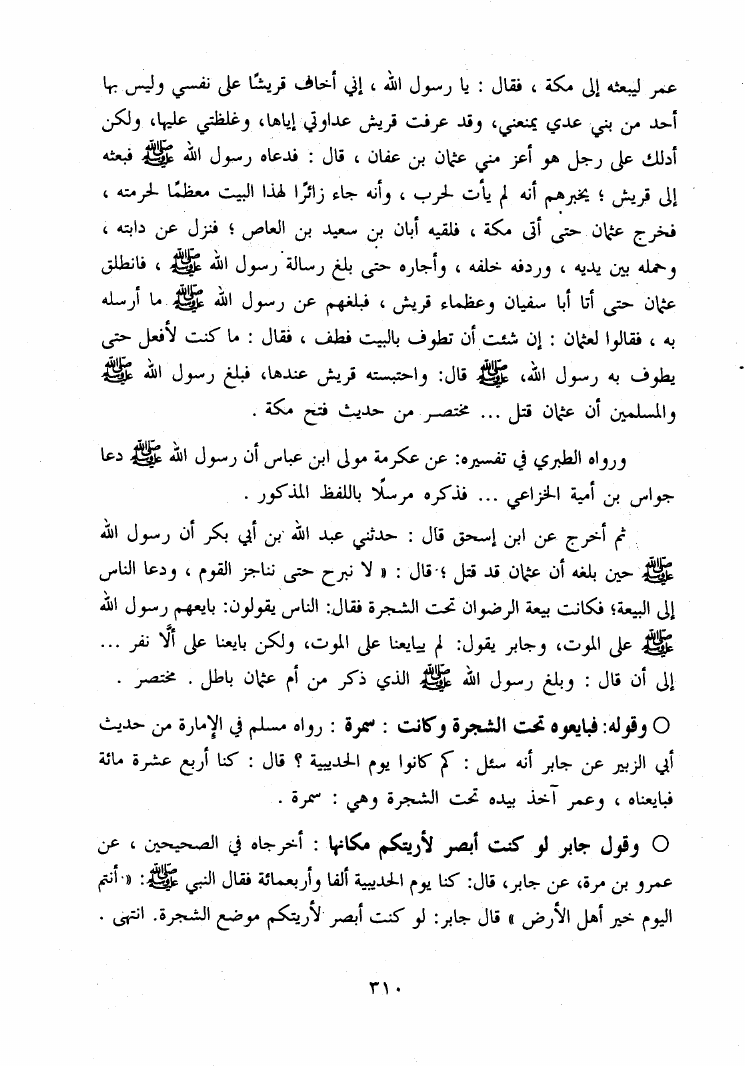 عمر ليبعثه إلى مكة ، فقال : يا رسول الله ، إني أخاف قريشًا على نفسي وليس بها
أحد من بني عدي يمنعني، وقد عرفت قريش عداوتي إياها، وغلظتي عليها، ولكن
أدلك على رجل هو أعز مني عثمان بن عفان ، قال : فدعاه رسول الله ﷺ فبعثه
إلى قريش ؛ يخبرهم أنه لم يأت لحرب ، وأنه جاء زائرًا لهذا البيت معظمًا لحرمته ،
فخرج عثمان حتى أتى مكة ، فلقيه أبان بن سعيد بن العاص ؛ فنزل عن دابته ،
وحمله بين يديه ، وردفه خلفه ، وأجاره حتى بلغ رسالة رسول الله ﷺ ، فانطلق
عثمان حتى أتا أبا سفيان وعظماء قريش ، فبلغهم عن رسول الله ﷺ ما أرسله
به ، فقالوا لعثمان : إن شئت أن تطوف بالبيت فطف ، فقال : ما كنت لأفعل حتى
يطوف به رسول الله، ﷺ قال: واحتبسته قريش عندها، فبلغ رسول الله ﷺ
والمسلمين أن عثمان قتل ... مختصر من حديث فتح مكة .
ورواه الطبري في تفسيره: عن عكرمة مولى ابن عباس أن رسول الله ﷺ دعا
جواس بن أمية الخزاعي ... فذكره مرسلًا باللفظ المذكور .
ثم أخرج عن ابن إسحق قال : حدثني عبد الله بن أبي بكر أن رسول الله
ﷺ حين بلغه أن عثمان قد قتل ؛ قال : « لا نبرح حتى نناجز القوم ، ودعا الناس
إلى البيعة؛ فكانت بيعة الرضوان تحت الشجرة فقال: الناس يقولون: بايعهم رسول الله
ﷺ على الموت، وجابر يقول: لم يبايعنا على الموت، ولكن بايعنا على ألَّا نفر ...
إلى أن قال : وبلغ رسول الله ﷺ الذي ذكر من أم عثمان باطل . مختصر .
○ وقوله: فبايعوه تحت الشجرة وكانت : سمرة : رواه مسلم في الإمارة من حديث
أبي الزبير عن جابر أنه سئل : كم كانوا يوم الحديبية ؟ قال : كنا أربع عشرة مائة
فبايعناه ، وعمر آخذ بيده تحت الشجرة وهي : سمرة .
○ وقول جابر لو كنت أبصر لأريتكم مكانها : أخرجاه في الصحيحين ، عن
عمرو بن مرة، عن جابر، قال: كنا يوم الحديبية ألفا وأربعمائة فقال النبي ﷺ: « أنتم
اليوم خير أهل الأرض » قال جابر: لو كنت أبصر لأريتكم موضع الشجرة. انتهى .
٣١٠